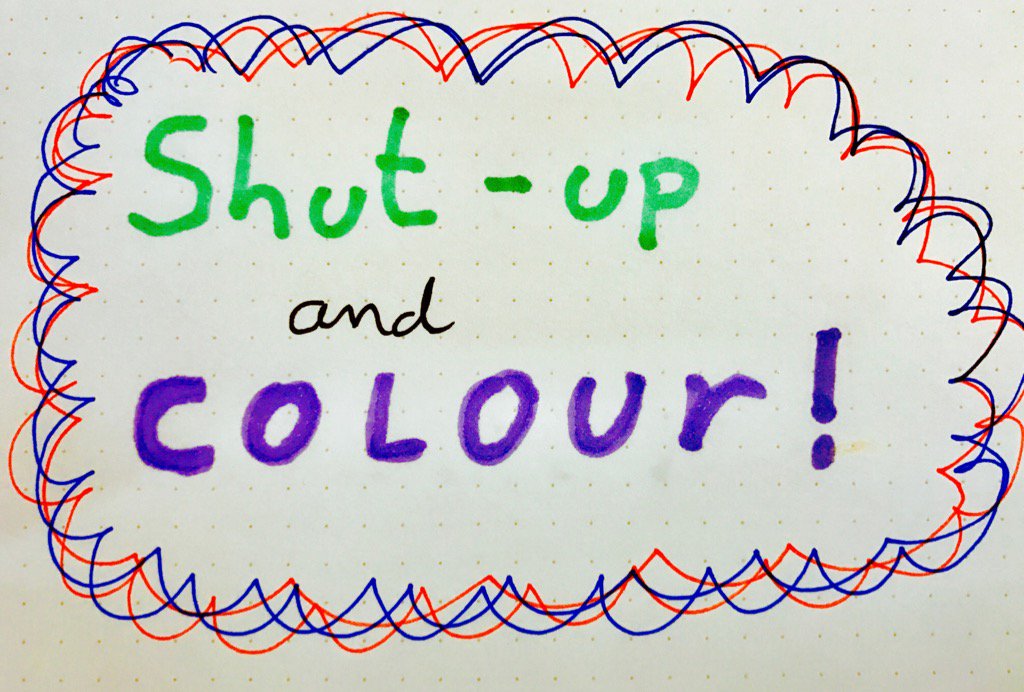 Shut-up
and
COLOUr!